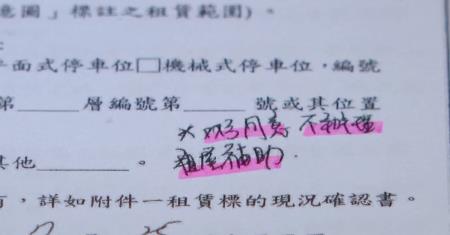 意圖」標註之租賃範圍)。
平面式停車位□機械式停車位,編號
第______層編號第______號或其位置
*双方同意 不辦理
租屋補助.
其他______。
有,詳如附件一租賃標的現況確認書。